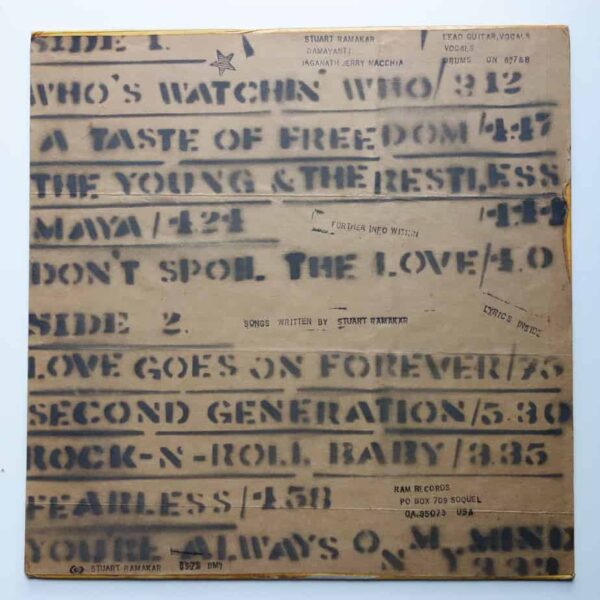 SIDE 1.
STUART RAMAKAR LEAD GUITAR, VOCALS
DAMAYANTI VOCALS
JAGANATH JERRY MACCHIA DRUMS ON 6778
WHO'S WATCHIN' WHO/3 12
A TASTE OF FREEDOM/4:47
THE YOUNG & THE RESTLESS
/4:44
MAYA/4.24
FURTHER INFO WITHIN
DON'T SPOIL THE LOVE/4.0
LYRICS INSIDE
SIDE 2.
SONGS WRITTEN BY STUART RAMAKAR
LOVE GOES ON FOREVER/
SECOND GENERATION/5.30
ROCK-N-ROLL BABY/3.35
FEARLESS/4.58
RAM RECORDS
PO BOX 709 SOQUEL
CA.95073 USA
YOU'RE ALWAYS ON MY MIND
STUART RAMAKAR BMI